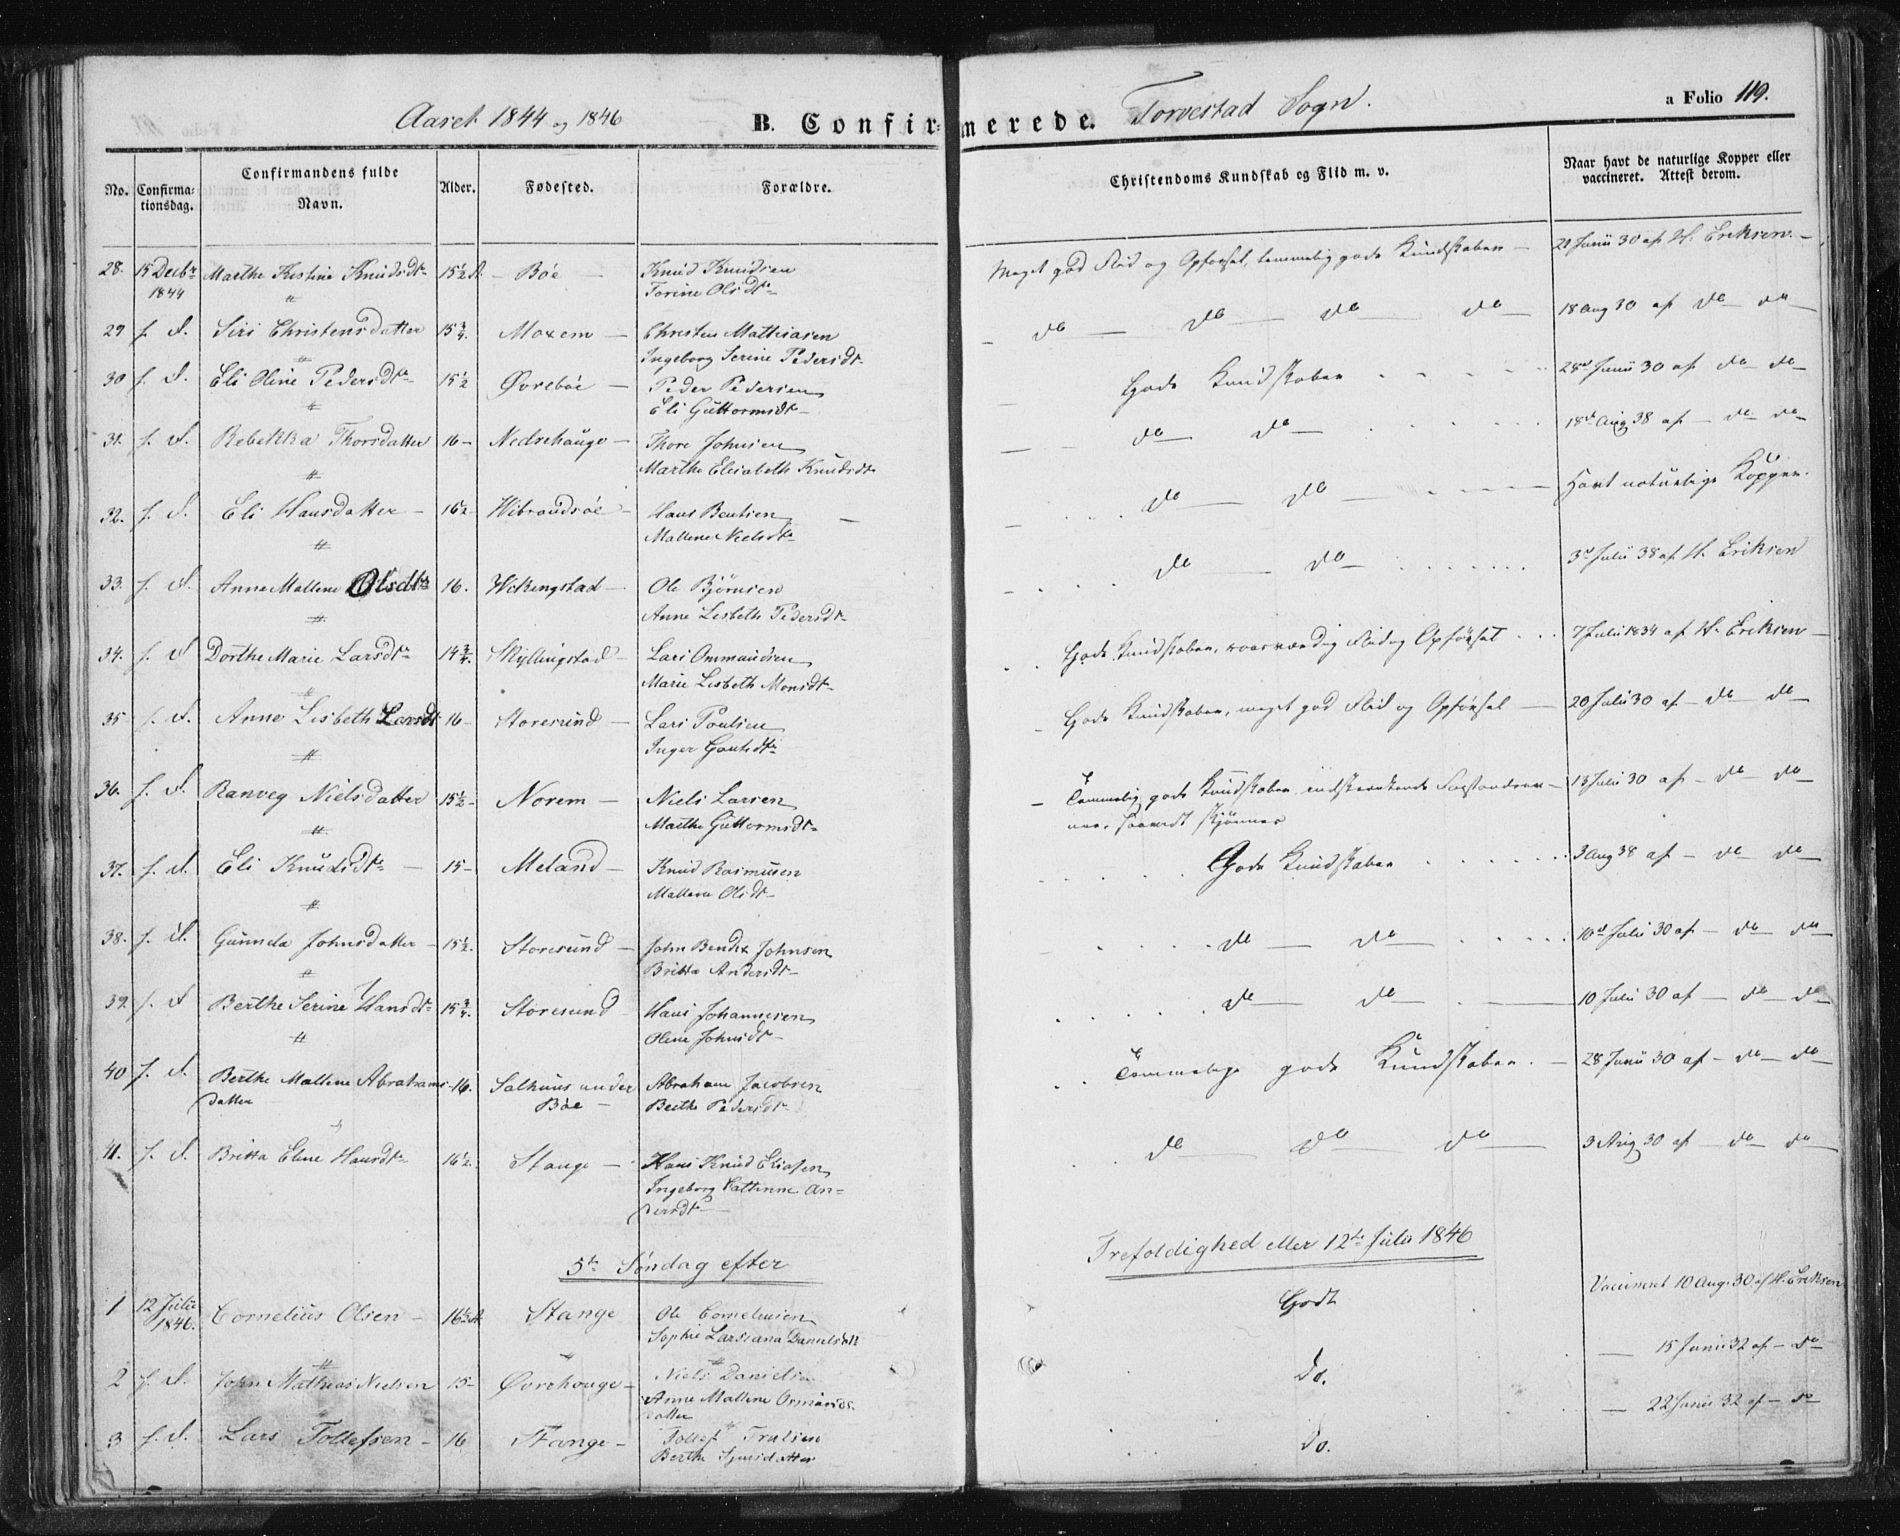 Aaret 1844 og 1846 B. Confirmerede. Torvestad Sogn. a Folio 119.
No. Confirmationsdag. Confirmandens fulde Navn. Alder. Fødested. Forældre. Christendoms Kundskab og Flid m. v. Naar havt de naturlige Kopper eller vaccineret. Attest derom.
28. 15 Decbr 1844 Marthe Kistine Knudsdtr 15½ A. Böe Knud Knudsen Meget god Flid og Opförsel, temmelig gode Kundskaber 20 Junii 30 af H. Eriksen
Torine Olsdtr
29 f. d. Siri Christensdatter 15¾. Moxem Christen Mathiasen do do do do 18 Aug 30 af do do
Ingeborg Serine Pedersdtr
30 f. d. Eli Oline Pedersdtr 15½ Øvreböe Peder Pedersen Gode Kundskaber 28de Junii 30 af do do
Eli Guttormsdtr
31. f. d. Rebekka Thorsdatter 16 Nedrehauge Thore Johnsen do do 18de Aug 38 af do do
Marthe Elisabeth Knudsdtr
32. f. d. Eli Hansdatter 16½ Wibrandsöe Hans Bentsen do do Havt naturlige Kopper.
Mallene Nielsdtr
33. f. d. Anne Mallene Olsdtr 16. Wikingstad Ole Bjørnsen do do 3de Julii 38 af H. Eriksen
Anne Lisbeth Pedersdtr
34. f. d. Dorthe Marie Larsdtr 14¾. Skyllingstad Lars Ommundsen Gode Kundskaber, roesværdig Flid og Opförsel 7 Julii 1834 af H. Eriksen
Marie Lisbeth Monsdtr
35 f. d. Anne Lisbeth Larsdt 16 Storesund Lars Poulsen Gode Kundskaber, meget god Flid og Opförsel 20 Julii 30 af do do
Inger Gautsdtr
36. f. d. Ranveg Nielsdatter 15½ Norem Niels Larsen Temmelig gode Kundskaber 13 Julii 30 af do do
Marthe Guttormsdtr
37. f. d. Eli Knudsdtr 15 Meland Knud Rasmusen Gode Kundskaber 3 Aug 38 af do do
Mallene Olsdt
38. f. d. Gunnda Johnsdatter 15½. Storesund John Bendix Johnsen do do 10de Julii 30 af do do
Britta Andersdt
39. f. d Berthe Serine Hansdt 15¾. Storesund Hans Johannesen do do 10 Julii 30 af do do
Oline Johnsdt
40 f. d. Berthe Mallene Abrahamsdatter 16. Salhuus under Böe Abraham Jacobsen Temmelige gode Kundskaber. 28 Junii 30 af do do
Berthe Pedersdt
41. f. d. Britta Eline Hansdt 16½. Stange Hans Knud Eliasen do do do 3 Aug 30 af do do
Ingeborg Cathrine Andersdt
5te Søndag efter Trefoldighed eller 12te Julii 1846
1 12 Julii 1846. Cornelius Olsen 16¼ A. Stange Ole Corneliusen Godt Vaccineret 10 Aug. 30 af H. Eriksen
Sophie Larsiana Danielsdtr
2 f. d. John Mathias Nielsen 15 Øvrehauge Niels Danielsen do. 15 Junii 32 af do
Anne Mallene Ormundsdatter
3 f. d. Lars Tollefsen 16 Stange Tollef Trulsen do. 22 Junii 32 af do
Berthe Sjursdatter